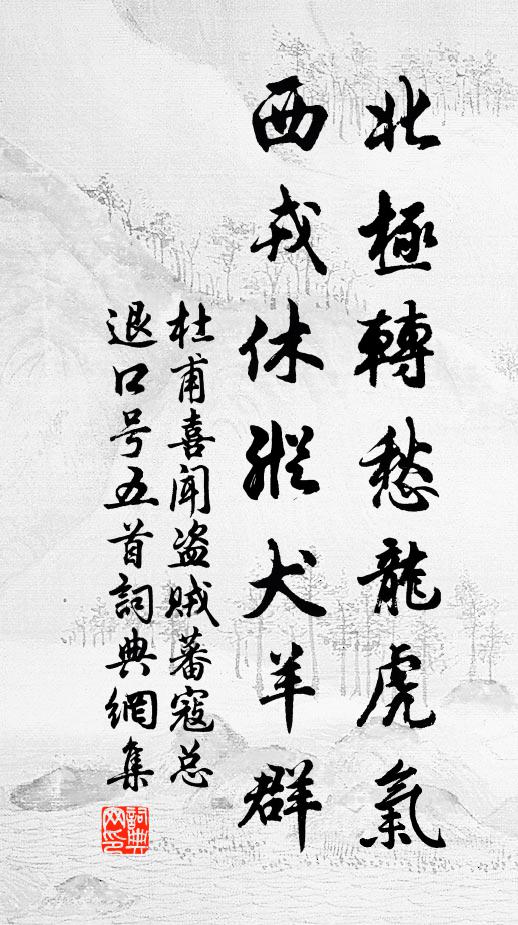 北極轉愁龍虎氣
西戎休縱犬羊群
杜甫喜闻盗贼蕃寇总
退口号五首詞典網集
詞典网印